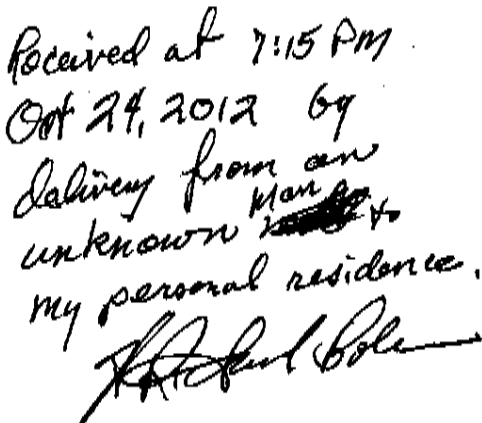 Received at 7:15 PM
Oct 24, 2012 by
delivery from an
unknown man to
my personal residence.